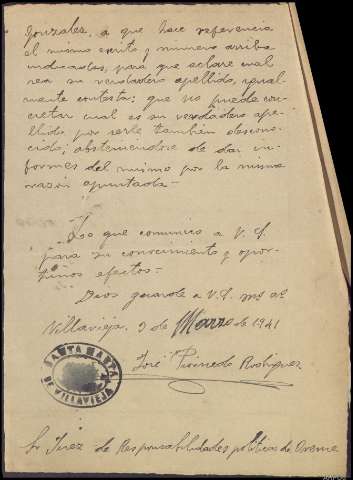 Gonzalez, a que hace referencia
el mismo escrito y numero arriba
indicados, para que aclare cual
sea su verdadero apellido, igual-
mente contesta: que no puede con-
cretar cual es su verdadero ape-
llido por serle tambien descono-
cido; absteniendose de dar in-
formes del mismo por la misma
razón apuntada.-
Lo que comunico a V. S.
para su conocimiento y opor-
tunos efectos.-
Dios guarde a V. S. ms. as.
Villavieja, 9 de Marzo de 1941
José Rodriguez
SANTA MARTA
DE VILLAVIEJA
Sr Juez de Responsabilidades politicas de Orense